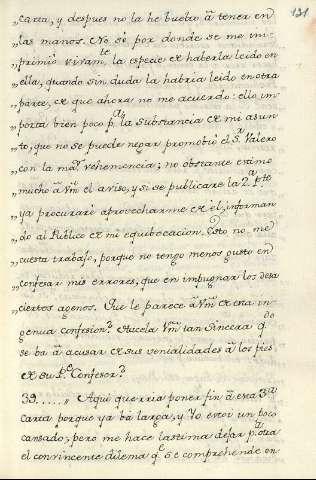 131
„carta, y despues no la he buelto â tener en
„las manos. No sè por donde se me im-
„primiò vivam.te la especie de haberla leido en
„ella, quando sin duda la habria leido en otra
„parte, de que ahora no me acuerdo: ello im-
„porta bien poco p.a la substancia de mi asun
„to, que no se puede negar promobiò el S.r Valero
„con la may.r vehemencia; no obstante estimo
„mucho â Vm̃ el aviso, y si se publicare la 2.a p.te
„ya procurarè aprovecharme de èl, informan
„do al Publico de mi equibocacion. Esto no me
„cuesta trabajo, porque no tengo menos gusto en
„confesar mis errores, que en impugnar los desa
„ciertos agenos. Què le parece â Vm̃ de esta in-
genua confesion? Aucela Vm̃ tan sincera q.do
se ba â acusar de sus venialidades â los pies
de su P.e Confesor?
39..... „ Aqui querria poner fin â esta 3.a
carta porque ya bâ larga, y Yo estoi un poco
cansado; pero me hace lastima dejar p.a otra
el convincente dilema q.e se comprehende en